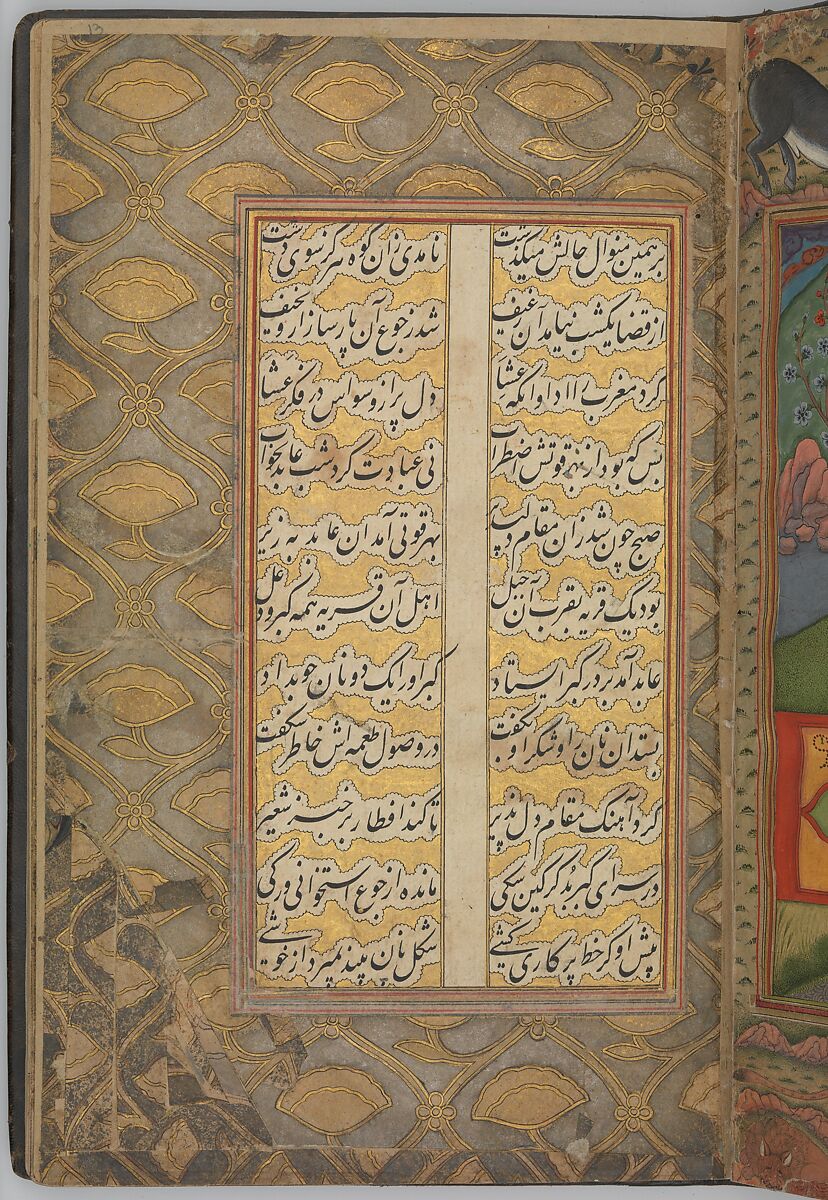 13
برهمین منوال حالش میگذشت
نامدی زان کوه هرگز سوی دشت
از قضا یکشب نیامد آن رغیف
شد ز جوع آن پارسا زار و نحیف
کرد مغرب را ادا وانگه عشا
دل پر از وسواس در فکر عشا
بس که بود از بهر قوتش اضطراب
نی عبادت کرد شب عابد نخواب
صبح چون شد زان مقام دلپذیر
بهر قوتی آمد آن عابد به زیر
بود یک قریه بقرب آن جبل
اهل آن قریه همه کبر و دغل
عابد آمد بر در کبر ایستاد
کبر او را یک دو نان جو بداد
بستد آن نان را و شکر او بگفت
در وصول طعمه اش خاطر شکفت
کرد آهنک مقام دل پذیر
تا کند افطار بر خبز شعیر
در سرای کبر بد کرکین سکی
مانده از جوع استخوانی و رکی
پیش او کر خط پرکاری کشی
شکل نان بیند بمیرد از خوشی